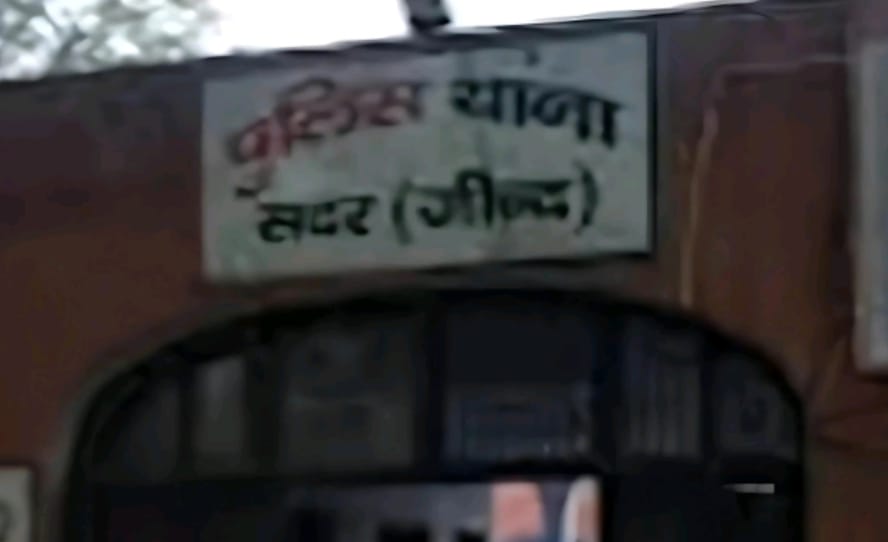 पुलिस थाना
सदर (जीन्द)